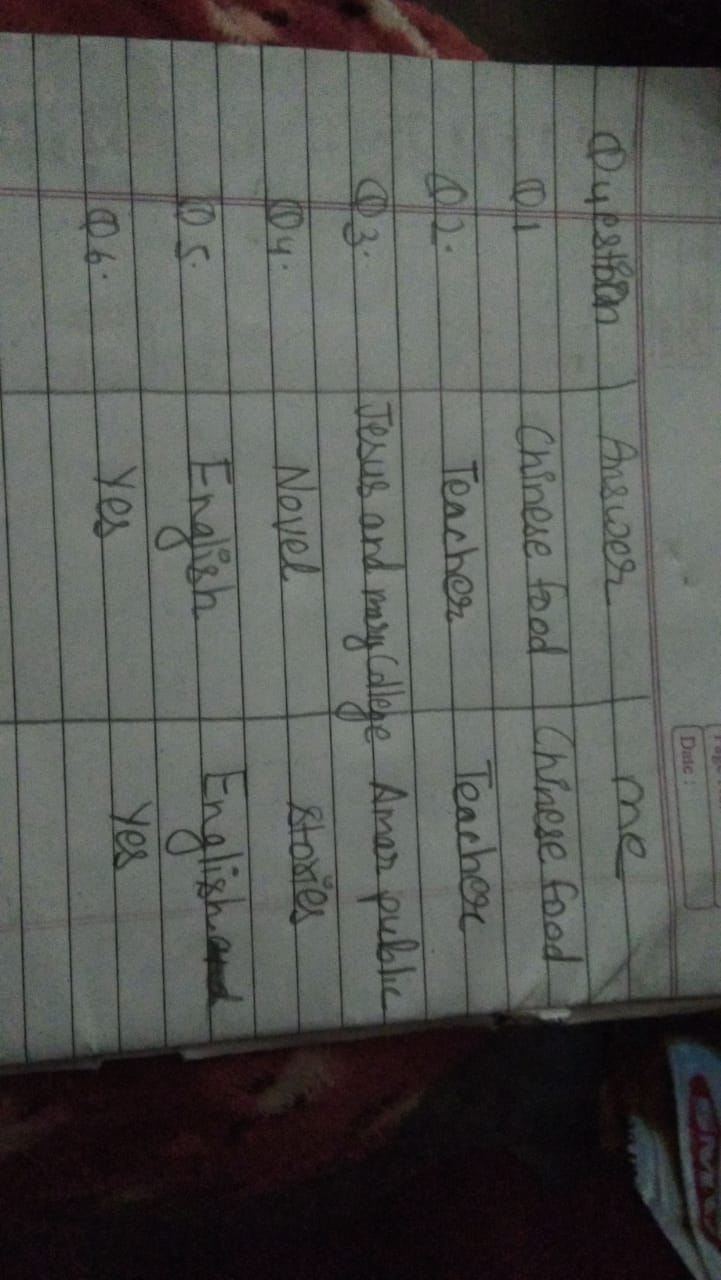 Date :
Question Answer me
Q1 Chinese food Chinese food
Q2. Teacher Teacher
Q3. Jesus and mary College Amar public
Q4. Novel stories
Q5. English English
Q6. Yes Yes